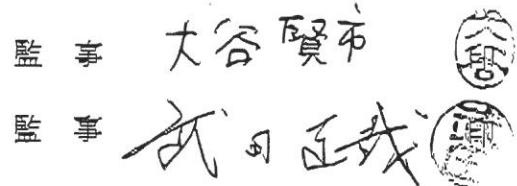 監事 大谷賢市
監事 武田正哉